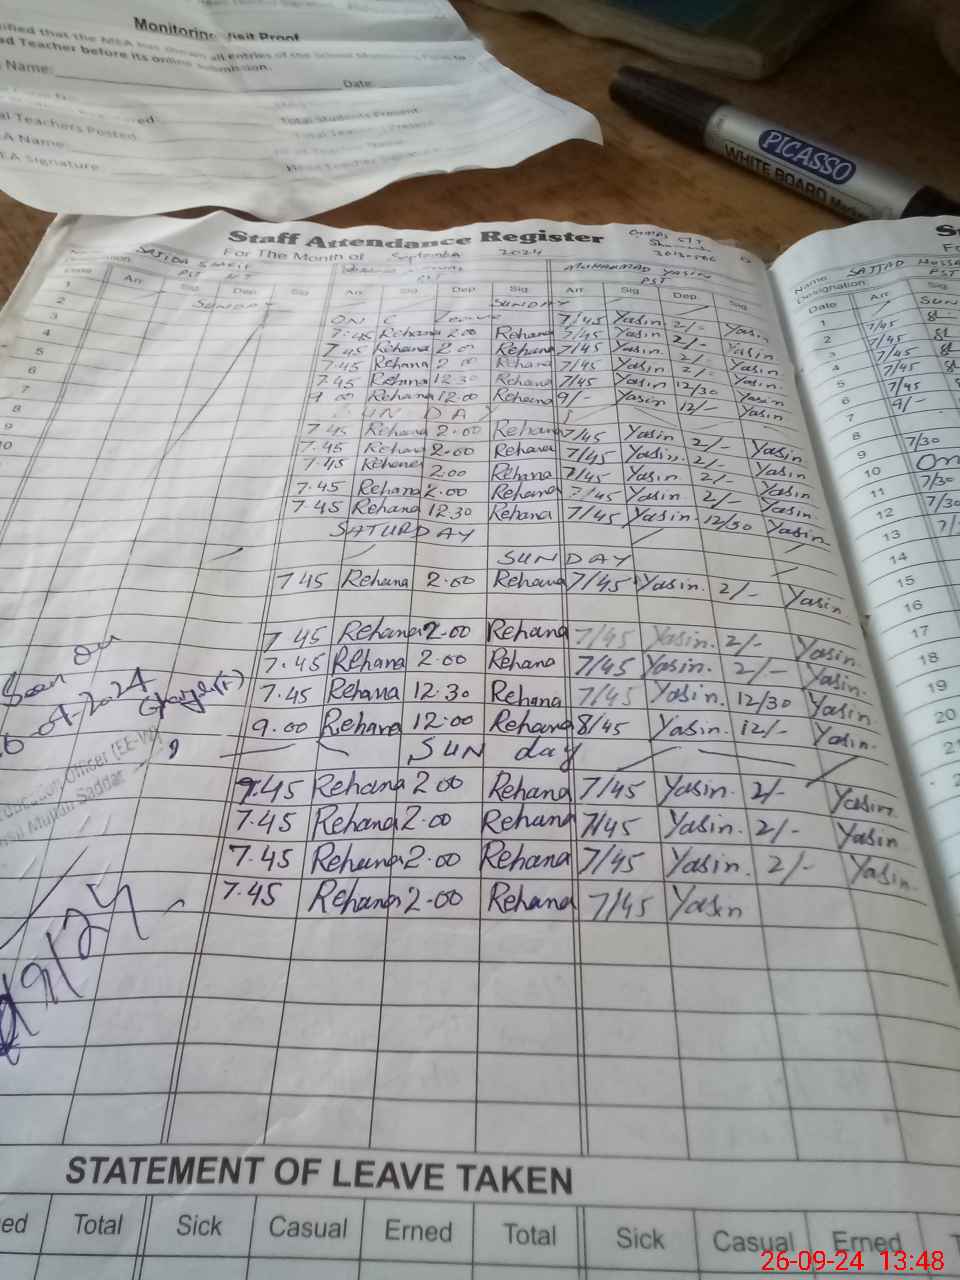 Monitoring Visit Proof
all entries of the
Teacher before its online submission.
Name:
Date:
Total Students Present
Teachers Posted
Name:
Signature:
PICASSO
WHITE BOARD Marker
Staff Attendance Register
For The Month of September 2024
SAJIDA
MUHAMMAD YASIN
PST PST PST
Arr. Sig. Dep. Sig. Arr. Sig. Dep. Sig. Arr. Sig. Dep. Sig.
SUNDAY SUNDAY
ON C Leave 7/45 Yasin 2/- Yasin
7.45 Rehana 2.00 Rehana 7/45 Yasin 2/- Yasin
7.45 Rehana 2.00 Rehana 7/45 Yasin 2/- Yasin
7.45 Rehana 2.00 Rehana 7/45 Yasin 2/- Yasin
7.45 Rehana 12.30 Rehana 7/45 Yasin 12/30 Yasin
9.00 Rehana 12.00 Rehana 9/- Yasin 12/- Yasin
SUNDAY
7.45 Rehana 2.00 Rehana 7/45 Yasin 2/- Yasin
7.45 Rehana 2.00 Rehana 7/45 Yasin 2/- Yasin
7.45 Rehana 2.00 Rehana 7/45 Yasin 2/- Yasin
7.45 Rehana 2.00 Rehana 7/45 Yasin 2/- Yasin
7.45 Rehana 12.30 Rehana 7/45 Yasin 12/30 Yasin
SATURDAY
SUNDAY
7.45 Rehana 2.00 Rehana 7/45 Yasin 2/- Yasin
7.45 Rehana 2.00 Rehana 7/45 Yasin 2/- Yasin
7.45 Rehana 2.00 Rehana 7/45 Yasin 2/- Yasin
7.45 Rehana 12.30 Rehana 7/45 Yasin 12/30 Yasin
9.00 Rehana 12.00 Rehana 8/45 Yasin 12/- Yasin
SUN day
7.45 Rehana 2.00 Rehana 7/45 Yasin 2/- Yasin
7.45 Rehana 2.00 Rehana 7/45 Yasin 2/- Yasin
7.45 Rehana 2.00 Rehana 7/45 Yasin 2/- Yasin
7.45 Rehana 2.00 Rehana 7/45 Yasin
Seen on
Education Officer (EE-W)
Saddar
9/24
STATEMENT OF LEAVE TAKEN
Total Sick Casual Erned Total Sick Casual Erned
Name: SAJJAD
Designation: PST
Date Arr. Sig.
1 SUN
2 7/45
3 7/45
4 7/45
5 7/45
6 7/45
7 9/-
8
9 7/30
10 On
11 7/30
12 7/30
13
14
15
16
17
18
19
20
21
26-09-24 13:48